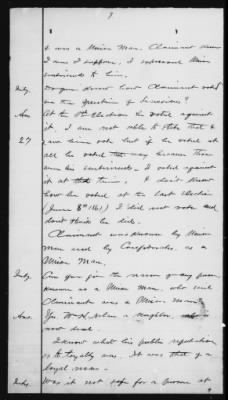 9
was a Union man. Claimant knew
I was I suppose. I expressed Union
sentiments to him.
Inty. Do you know how Claimant voted
on the question of Secession?
Ans. At the 1st Election he voted against
it. I am not able to state that I
27 saw him vote but if he voted at
all he voted that way because those
were his sentiments. I voted against
it at that time. I don't know
how he voted at the last election
(June 8th 1861) I did not vote and
don't think he did.
Claimant was known by Union
men and by Confederates as a
Union man.
Inty. Can you give the names of any persons
known as a Union man, who will
Claimant was a Union man?
Ans. Yes. Wm H. a neighbor
now dead.
I know what his public reputation
as to loyalty was. It was that of a
loyal man.
Inty. Was it not safe for a person at